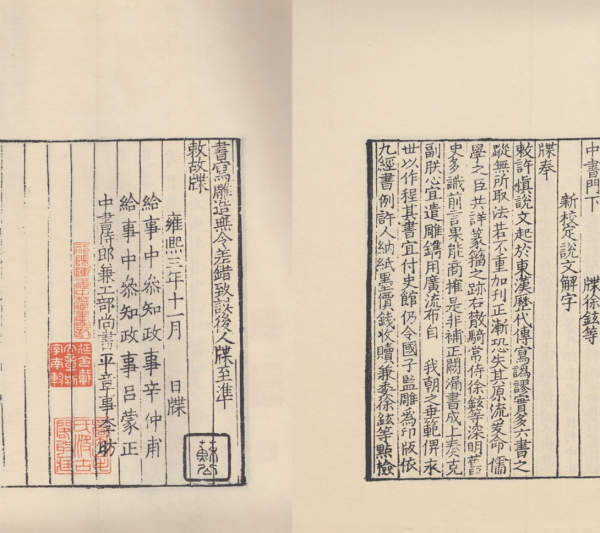 中書門下 牒徐鉉等
新校定説文解字
牒奉
敕許慎説文起於東漢歷代傳寫譌謬實多六書之
蹤無所取法若不重加刊正漸恐失其原流爰命儒
學之臣共詳篆籀之跡右散騎常侍徐鉉等深明舊
史多識前言果能商搉是非補正闕漏書成上奏克
副朕心宜遣雕鐫用廣流布自我朝之垂範俾永
世以作程其書宜付史館仍令國子監雕為印版依
九經書例許人納紙墨價錢收贖兼委徐鉉等點檢
書寫雕造無令差錯致誤後人牒至準
敕故牒
雍熙三年十一月 日牒
給事中叅知政事辛仲甫
給事中叅知政事呂蒙正
中書侍郎兼工部尚書平章事李昉